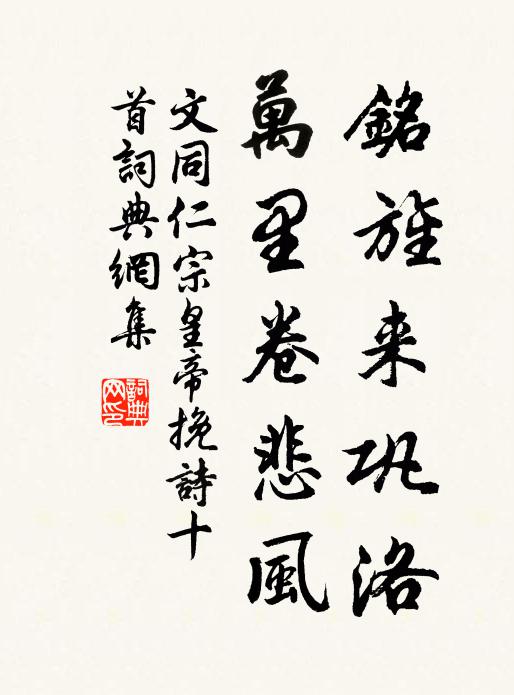 銘旌来巩洛
萬里卷悲風
文同仁宗皇帝挽詩十
首詞典網集
詞典
网印